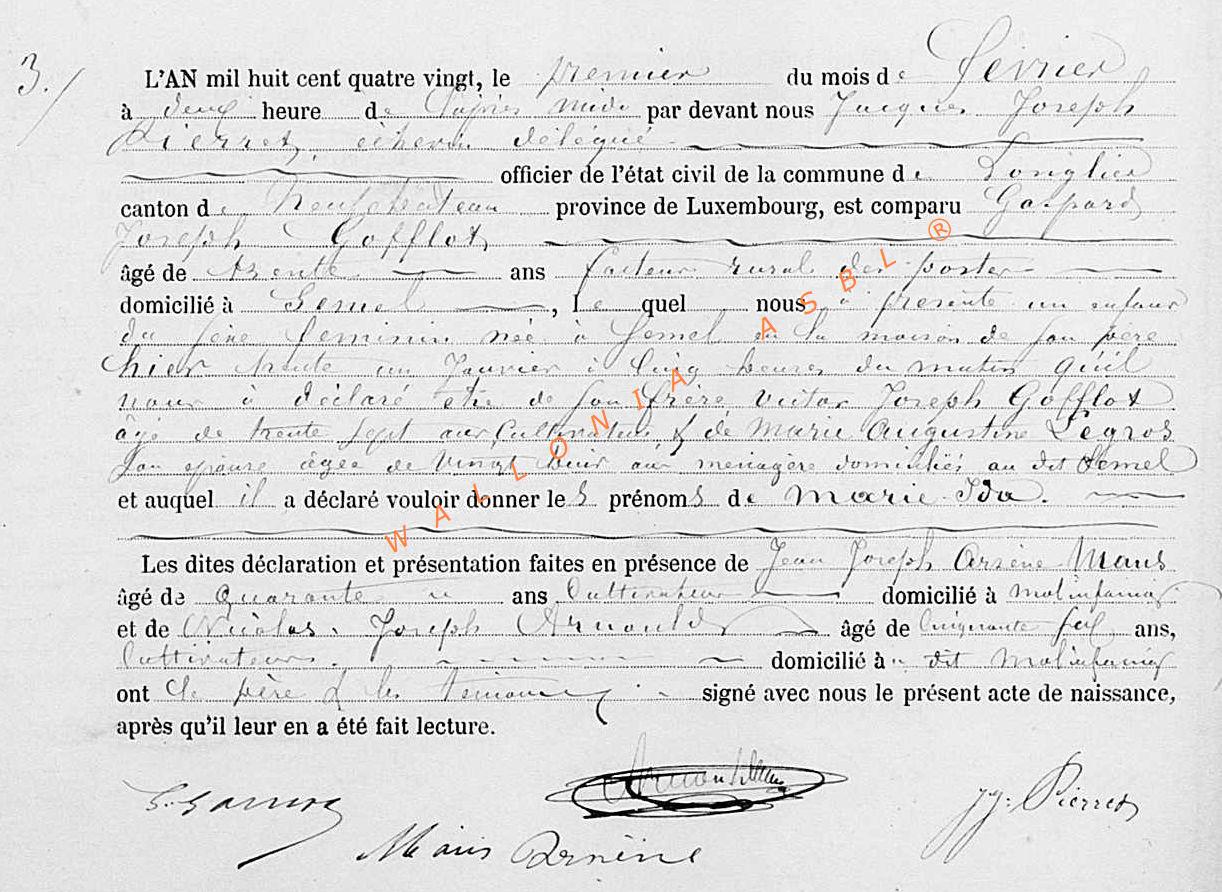 3./
L'AN mil huit cent quatre vingt, le premier du mois de février
à deux heure de l'après midi par devant nous Jacques Joseph
Pierret, échevin délégué
officier de l'état civil de la commune de Longlier
canton de Neufchateau province de Luxembourg, est comparu Gaspard
Joseph Gofflot,
âgé de trente ans facteur rural des postes
domicilié à Semel, le quel nous à présenté un enfant
du sexe féminin née à Semel en la maison de son père
hier trente un Janvier à cinq heures du matin qu'il
nous à déclaré etre de son frère Victor Joseph Gofflot
âgé de trente sept ans Cultivateur, & de Marie Augustine Legros
son epouse âgée de vingt huit ans menagère domiciliés au dit Semel
et auquel il a déclaré vouloir donner les prénoms de Marie Ida.
Les dites déclaration et présentation faites en présence de Jean Joseph Arsène Maus
âgé de Quarante ans Cultivateur domicilié à Molinfaing
et de Nicolas Joseph Arnould âgé de Cinquante ans,
Cultivateurs. domicilié à dit Molinfaing
ont le père & les temoins signé avec nous le présent acte de naissance,
après qu'il leur en a été fait lecture.
JJ: Pierret
Maus Arsène
WALLONIA ASBL ®